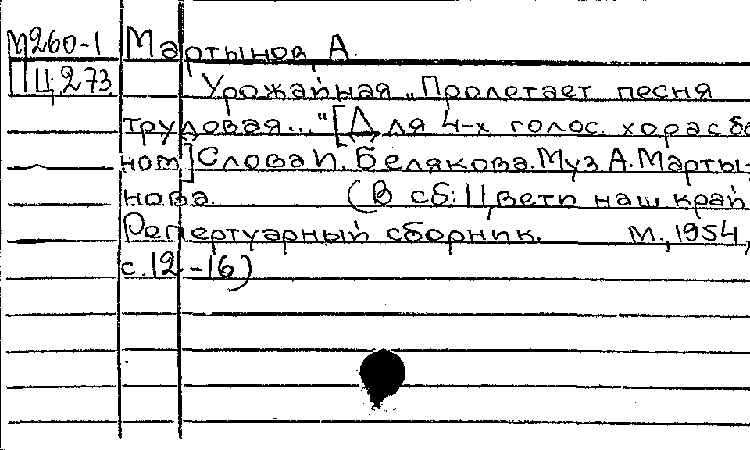 М260-1 Мартынов, А.
Ц273 Урожайная „Пролетает песня
трудовая..." [Для 4-х голос. хора с ба
ном] Слова П. Белякова. Муз. А. Марты-
нова. (В сб: Цвети наш край
Репертуарный сборник. М., 1954,
с. 12-16)